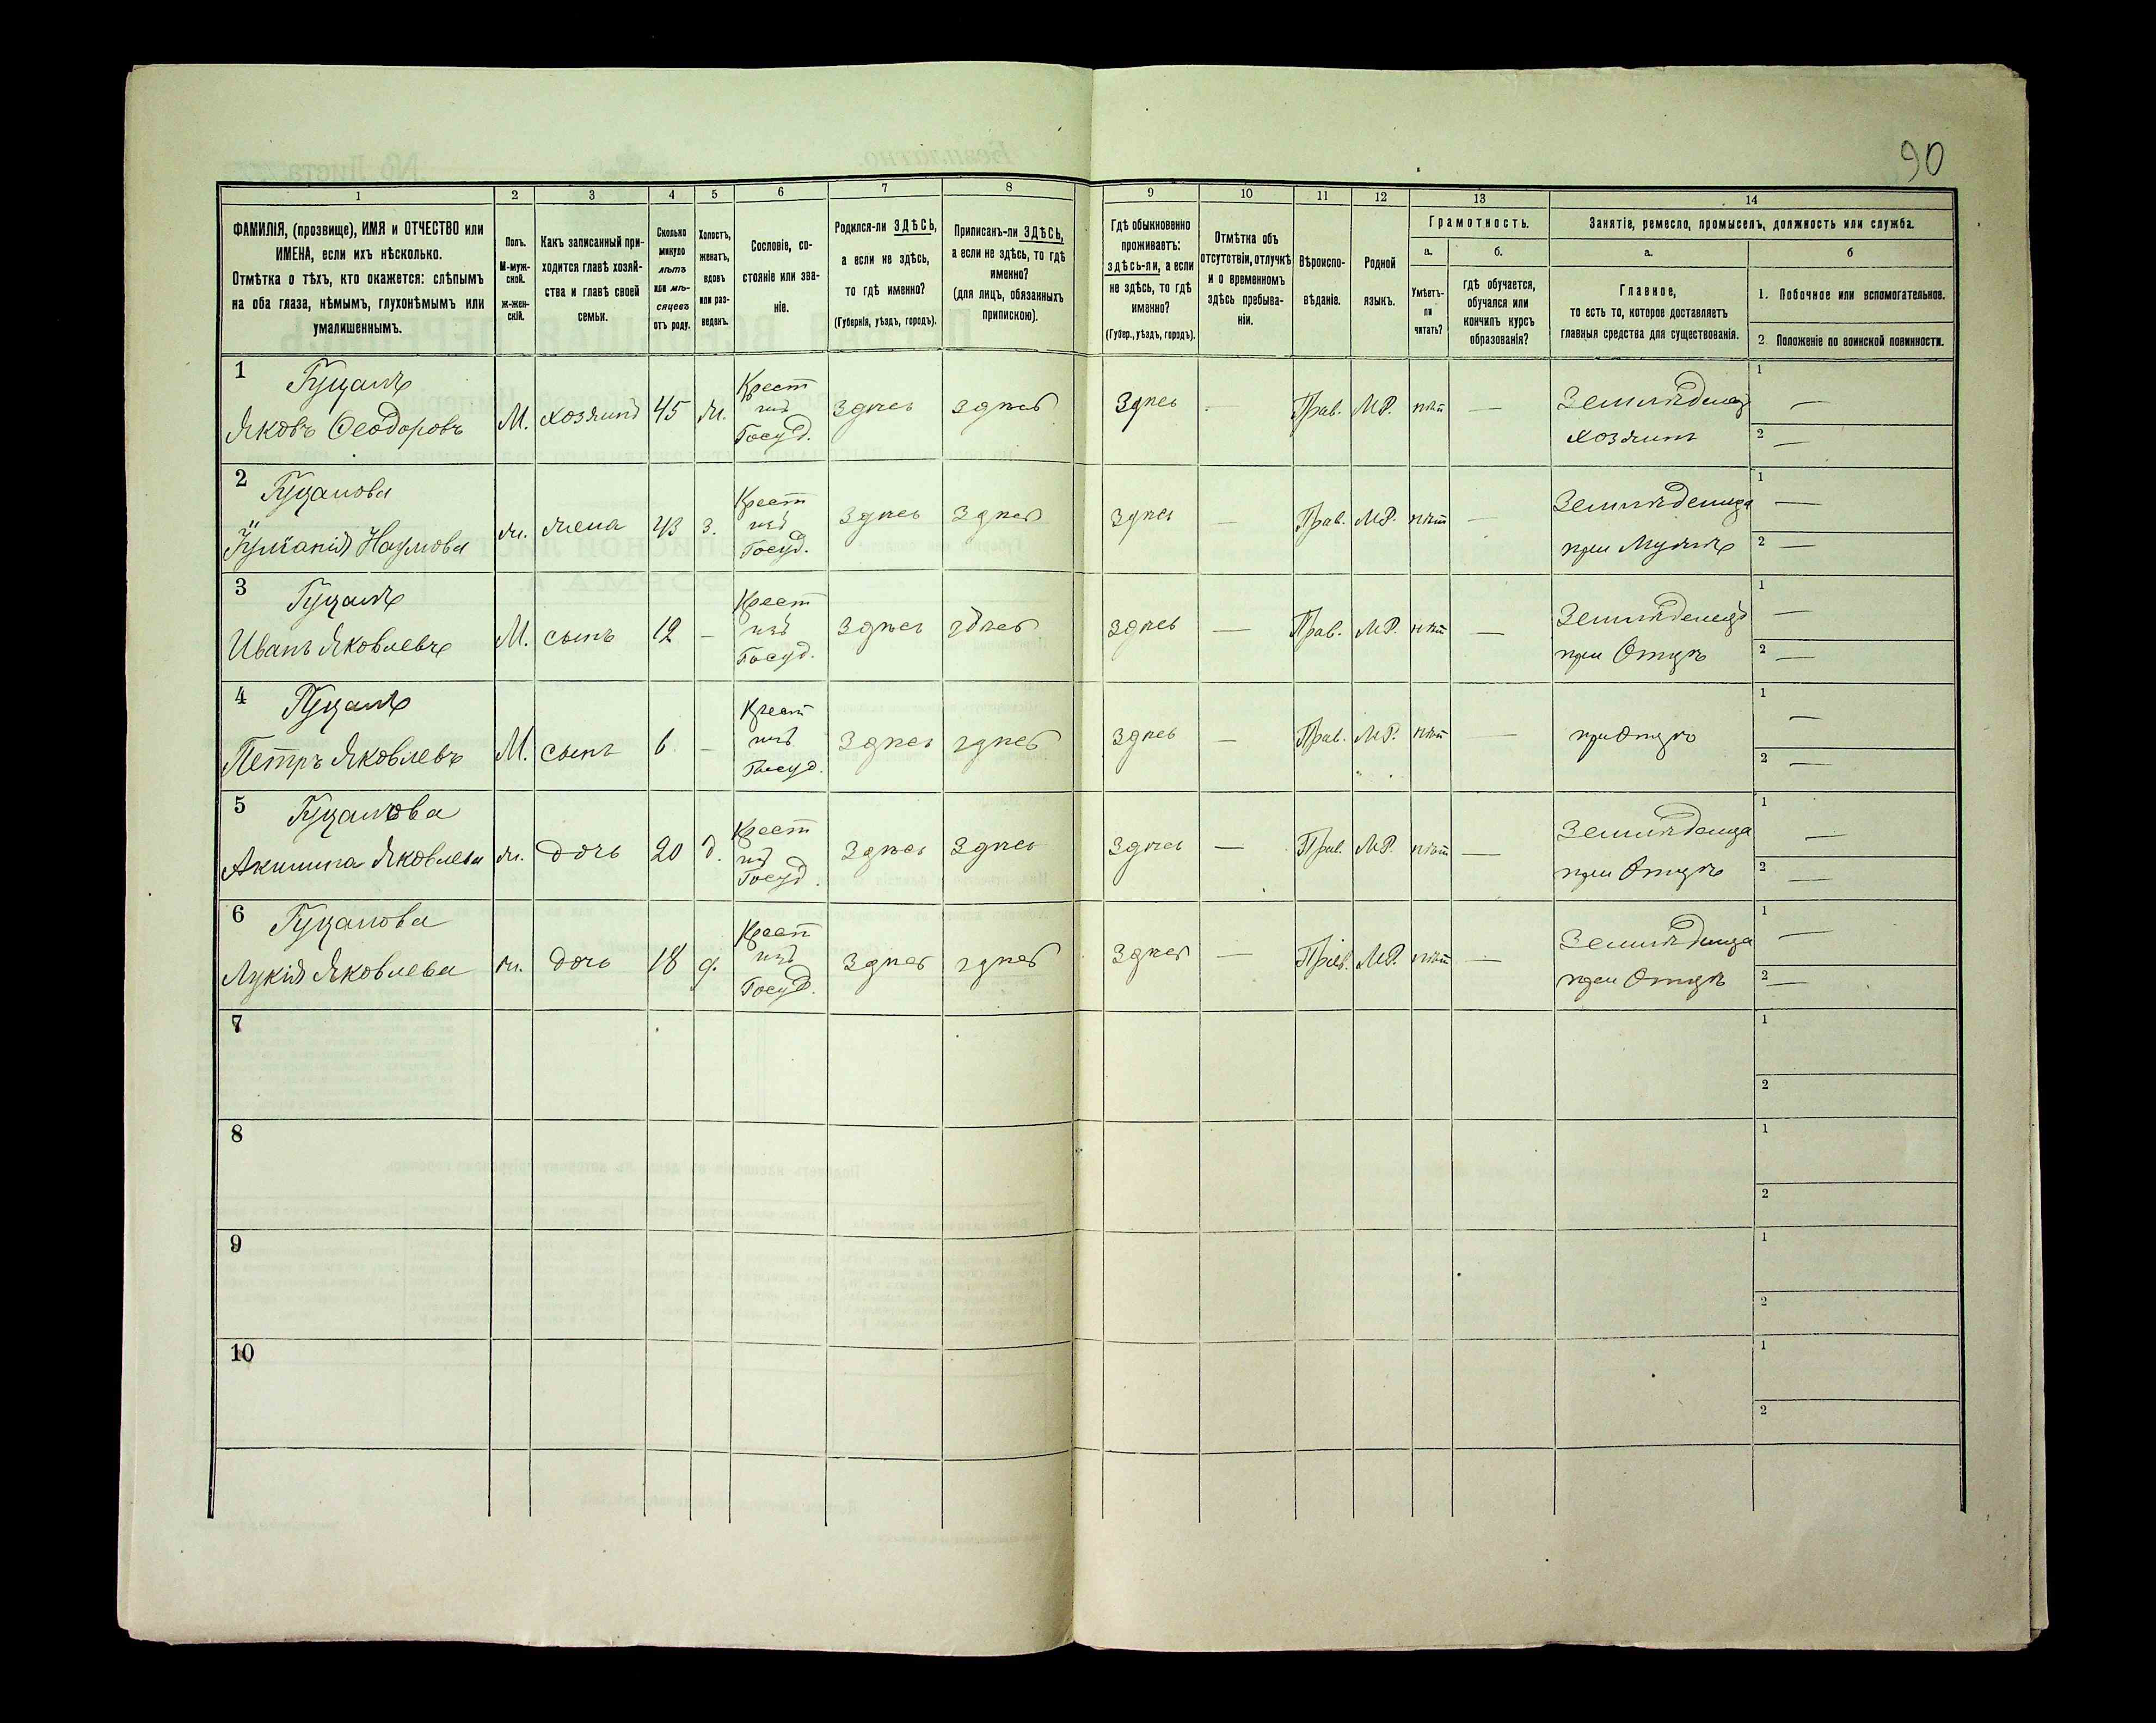 90
1 2 3 4 5 6 7 8 9 10 11 12 13 14
ФАМИЛІЯ, (прозвище), ИМЯ и ОТЧЕСТВО или
ИМЕНА, если ихъ нѣсколько.
Отмѣтка о тѣхъ, кто окажется: слѣпымъ
на оба глаза, нѣмымъ, глухонѣмымъ или
умалишеннымъ.
Полъ.
М-муж-
ской.
ж-жен-
скій.
Какъ записанный при-
ходится главѣ хозяй-
ства и главѣ своей
семьи.
Сколько
минуло
лѣтъ
или мѣ-
сяцевъ
отъ роду.
Холостъ,
женатъ,
вдовъ
или раз-
веденъ.
Сословіе, со-
стояніе или зва-
ніе.
Родился-ли ЗДѢСЬ,
а если не здѣсь,
то гдѣ именно?
(Губернія, уѣздъ, городъ).
Приписанъ-ли ЗДѢСЬ,
а если не здѣсь, то гдѣ
именно?
(для лицъ, обязанныхъ
припискою).
Гдѣ обыкновенно
проживаетъ:
здѣсь-ли, а если
не здѣсь, то гдѣ
именно?
(Губер., уѣздъ, городъ).
Отмѣтка объ
отсутствіи, отлучкѣ
и о временномъ
здѣсь пребыва-
ніи.
Вѣроиспо-
вѣданіе.
Родной
языкъ.
Грамотность.
а.
Умѣетъ-
ли
читать?
б.
гдѣ обучается,
обучался или
кончилъ курсъ
образованія?
Занятіе, ремесло, промыселъ, должность или служба.
а.
Главное,
то есть то, которое доставляетъ
главныя средства для существованія.
б
1. Побочное или вспомогательное.
2. Положеніе по воинской повинности.
1 Гуцалъ
Яковъ Ѳеодоровъ М. хозяинъ 45 ж. Крест изъ Госуд. Здѣсь здѣсь Здѣсь — Прав. МР. нѣт — Земледѣлец
хозяинъ
1 —
2 —
2 Гуцалова
Наумова ж. жена 43 з. Крест изъ Госуд. Здѣсь Здѣсь здѣсь — Прав. МР. нѣт — Земледѣлица
при Мужѣ
1 —
2 —
3 Гуцалъ
Иванъ Яковлевъ М. сынъ 12 — Крест изъ Госуд. Здѣсь здѣсь здѣсь — Прав. МР. нѣт — Земледѣлецъ
при Отцѣ
1 —
2 —
4 Гуцалъ
Петръ Яковлевъ М. сынъ 6 — Крест изъ Госуд. Здѣсь здѣсь здѣсь — Прав. МР. нѣт — при Отцѣ
1 —
2 —
5 Гуцалова
Акилина Яковлева ж. дочь 20 д. Крест изъ Госуд. Здѣсь Здѣсь здѣсь — Прав. МР. нѣт — Земледѣлица
при Отцѣ
1 —
2 —
6 Гуцалова
Лукія Яковлева ж. дочь 18 д. Крест изъ Госуд. Здѣсь здѣсь здѣсь — Прав. МР. нѣт — Земледѣлица
при Отцѣ
1 —
2 —
7
1
2
8
1
2
9
1
2
10
1
2